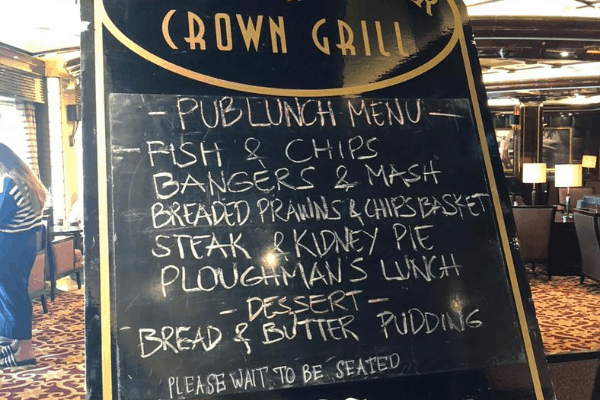 CROWN GRILL
- PUB LUNCH MENU -
- FISH & CHIPS
BANGERS & MASH
BREADED PRAWNS & CHIPS BASKET
STEAK & KIDNEY PIE
PLOUGHMAN'S LUNCH
- DESSERT -
BREAD & BUTTER PUDDING
PLEASE WAIT TO BE SEATED